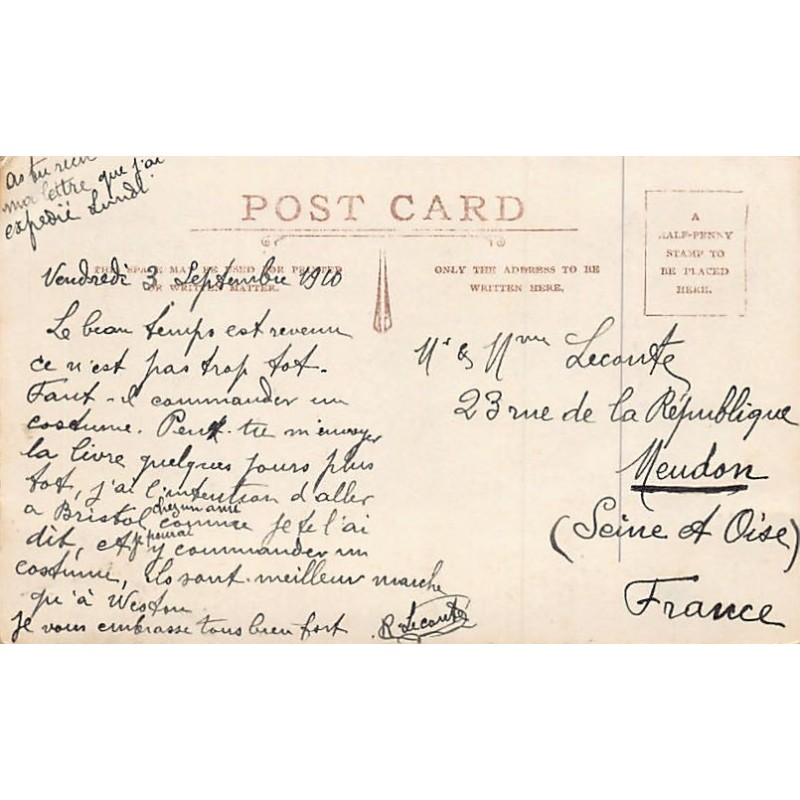 as tu reçu
ma lettre que j'ai
expedié Lundi.
POST CARD
THIS SPACE MAY BE USED FOR PRINTED
OR WRITTEN MATTER.
ONLY THE ADDRESS TO BE
WRITTEN HERE.
A
HALF-PENNY
STAMP TO
BE PLACED
HERE.
Vendredi 3 Septembre 1910
Le beau temps est revenu
ce n'est pas trop tot.
Faut-il commander un
costume. Peux-tu m'envoyer
la livre quelques jours plus
tot, j'ai l'intention d'aller
a Bristol chez un ami comme je te l'ai
dit, et je pourrai y commander un
costume, ils sont meilleur marche
qu'à Weston
je vous embrasse tous bien fort R Leconte
Mr & Mme Leconte
23 rue de la République
Meudon
(Seine et Oise)
France